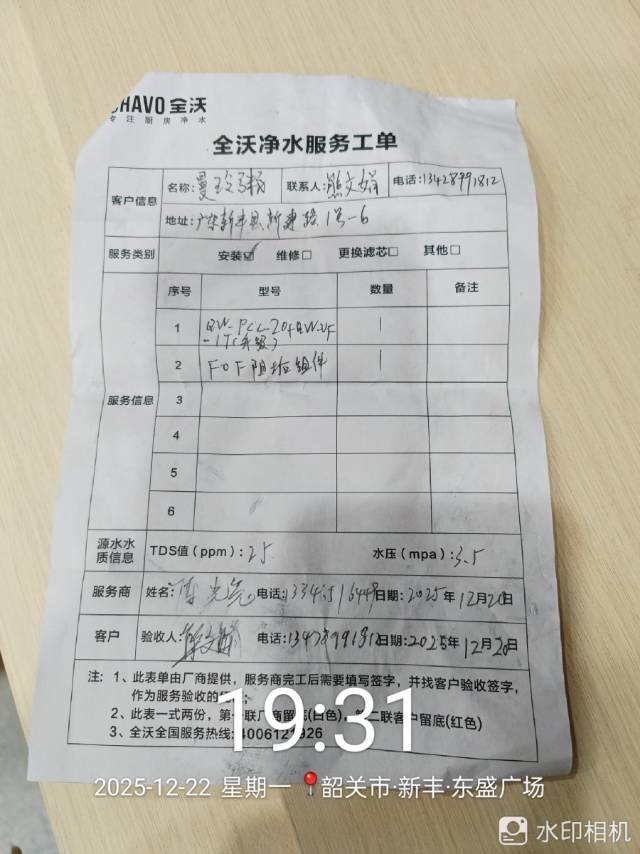 CHAVO 全沃
专注厨房净水
全沃净水服务工单
客户信息 名称: 曼玲粥 联系人: 熊文娟 电话: 13428991812
地址: 广东新丰县新建路1号-6
服务类别 安装☑ 维修☐ 更换滤芯☐ 其他☐
服务信息
序号 型号 数量 备注
1 1
2 FOF阻垢组件 1
3
4
5
6
源水水质信息 TDS值(ppm): 25 水压(mpa): 3.5
服务商 姓名: 电话: 日期: 2025年12月20日
客户 验收人: 熊文娟 电话: 日期: 2025年12月20日
注: 1、此表单由厂商提供,服务商完工后需要填写签字,并找客户验收签字,
作为服务验收的
2、此表一式两份,第一联厂商留底(白色),第二联客户留底(红色)
3、全沃全国服务热线:4006121926
19:31
2025-12-22 星期一 韶关市·新丰·东盛广场
水印相机